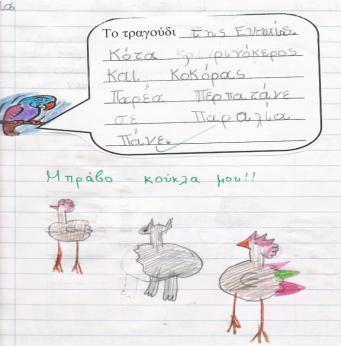 Το τραγούδι της
Κότα και ρινόκερος
και κοκόρας
Παρέα περπατάνε
σε Παραλία
Πάνε.
Μπράβο κούκλα μου!!